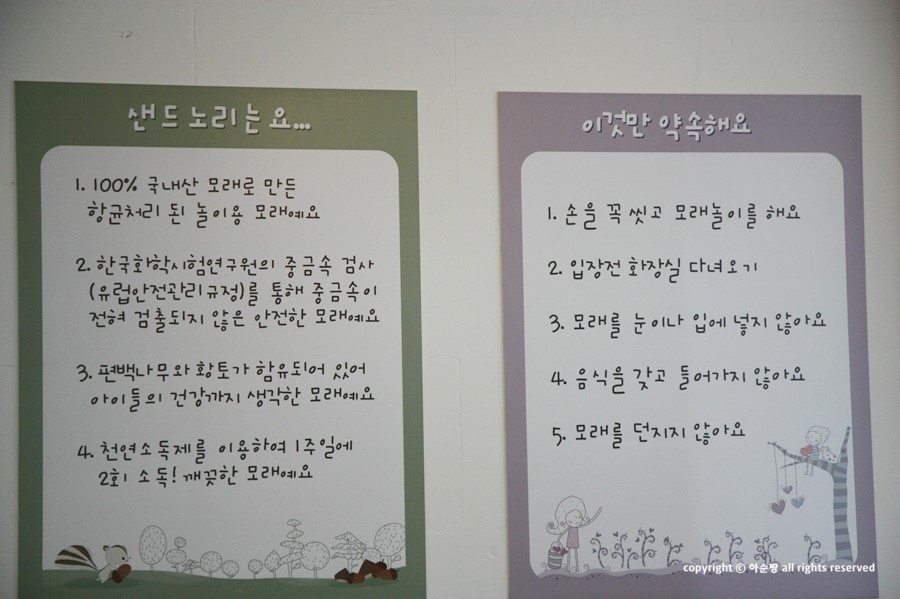 샌드 노리는 요...
1. 100% 국내산 모래로 만든
항균처리 된 놀이용 모래예요
2. 한국화학시험연구원의 중금속 검사
(유럽안전관리규정)를 통해 중금속이
전혀 검출되지 않은 안전한 모래예요
3. 편백나무와 황토가 함유되어 있어
아이들의 건강까지 생각한 모래예요
4. 천연소독제를 이용하여 1주일에
2회 소독! 깨끗한 모래예요
이것만 약속해요
1. 손을 꼭 씻고 모래놀이를 해요
2. 입장전 화장실 다녀오기
3. 모래를 눈이나 입에 넣지 않아요
4. 음식을 갖고 들어가지 않아요
5. 모래를 던지지 않아요
copyright ⓒ 아순짱 all rights reserved